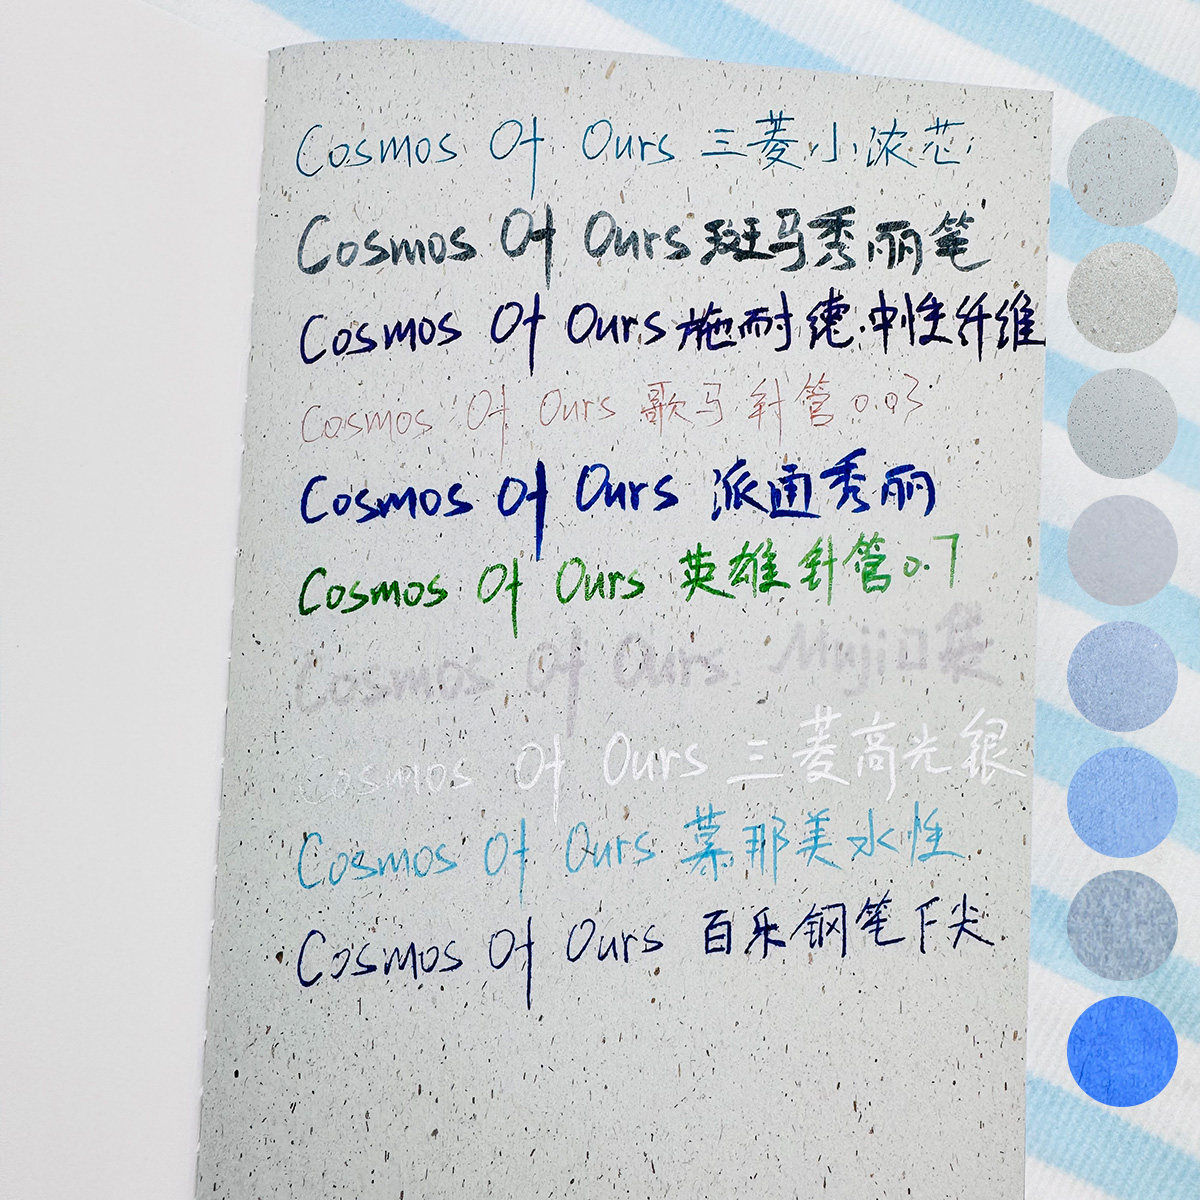 Cosmos Of Ours 三菱小浓芯
Cosmos Of Ours 斑马秀丽笔
Cosmos Of Ours 施耐德中性纤维
Cosmos Of Ours 歌马针管0.03
Cosmos Of Ours 派通秀丽
Cosmos Of Ours 英雄针管0.7
Cosmos Of Ours Muji口袋
Cosmos Of Ours 三菱高光银
Cosmos Of Ours 慕那美水性
Cosmos Of Ours 百乐钢笔F尖